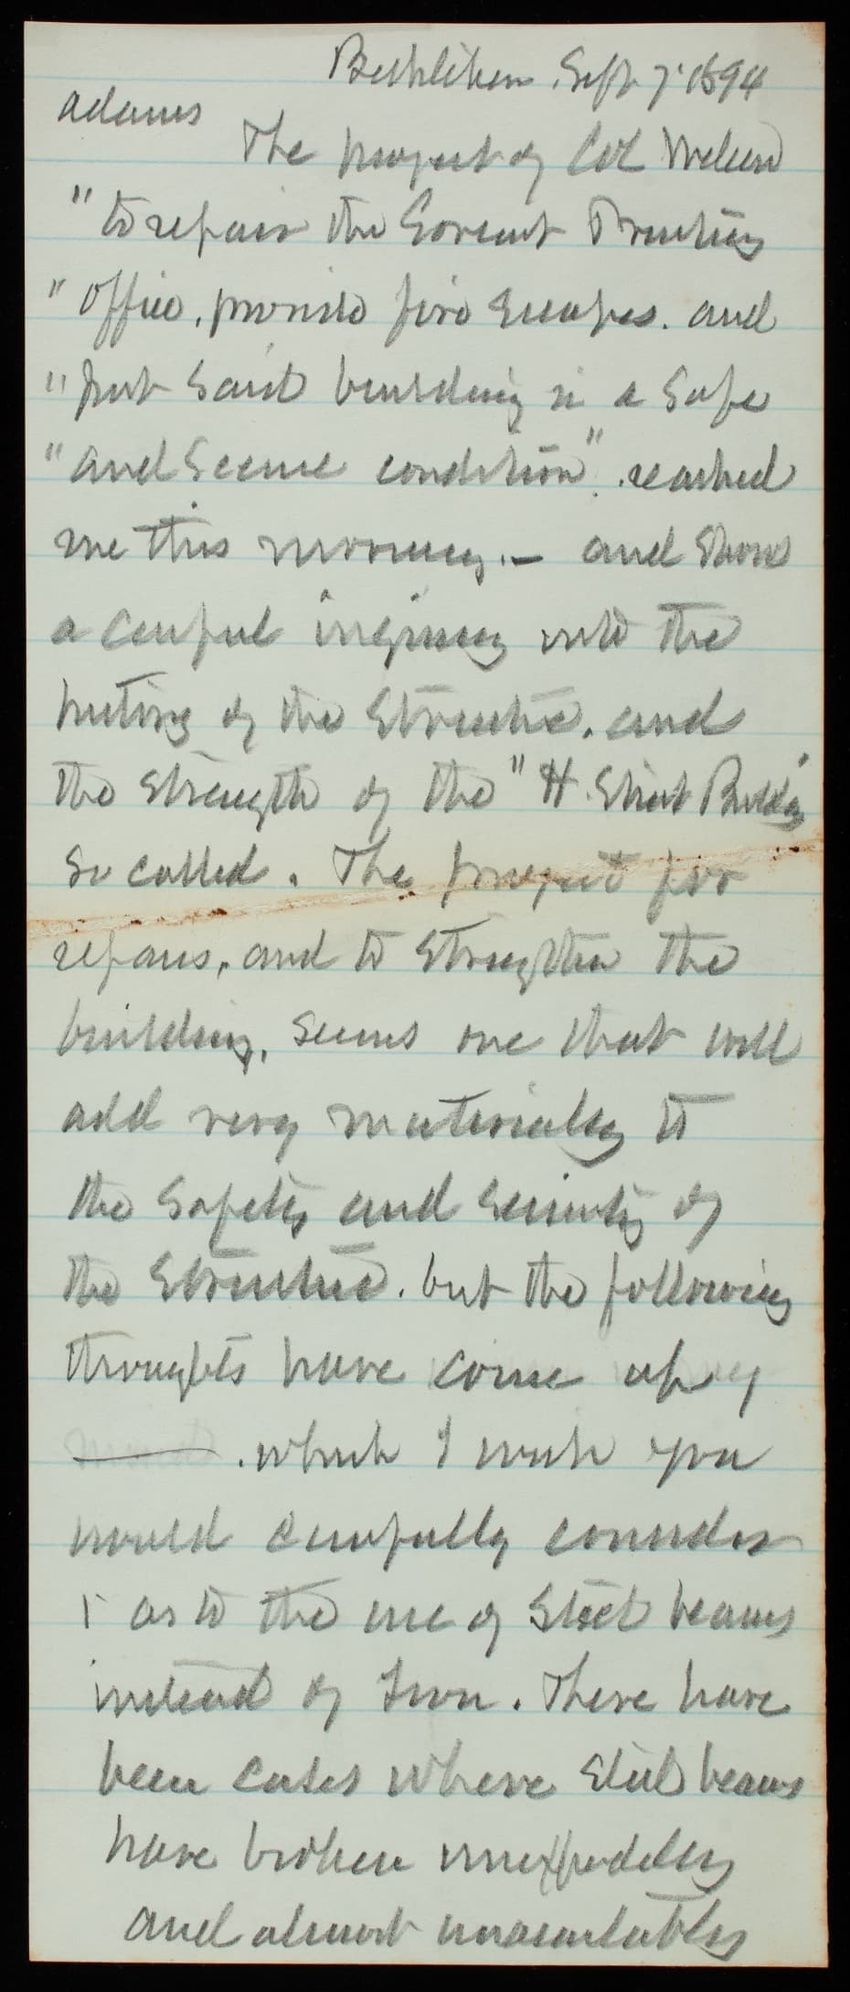 Bethlehem. Sept 7. 1894
Adams
The project of Col Wilson
"to repair the Goverment Printing
"Office, provide fire Escapes. and
"put said building in a safe
"and Secure condition". reached
me this morning. — and shows
a careful inquiry into the
history of the Structure. and
the strength of the "H. Street Buildg"
so called. The project for
repairs, and to strengthen the
building, seems one that will
add very materially to
the safety and security of
the Structure. but the following
thoughts have come up
. which I wish you
would carefully consider
1 as to the use of Steel beams
instead of Iron. There have
been cases where Steel beams
have broken unexpectedly
and almost unaccountably